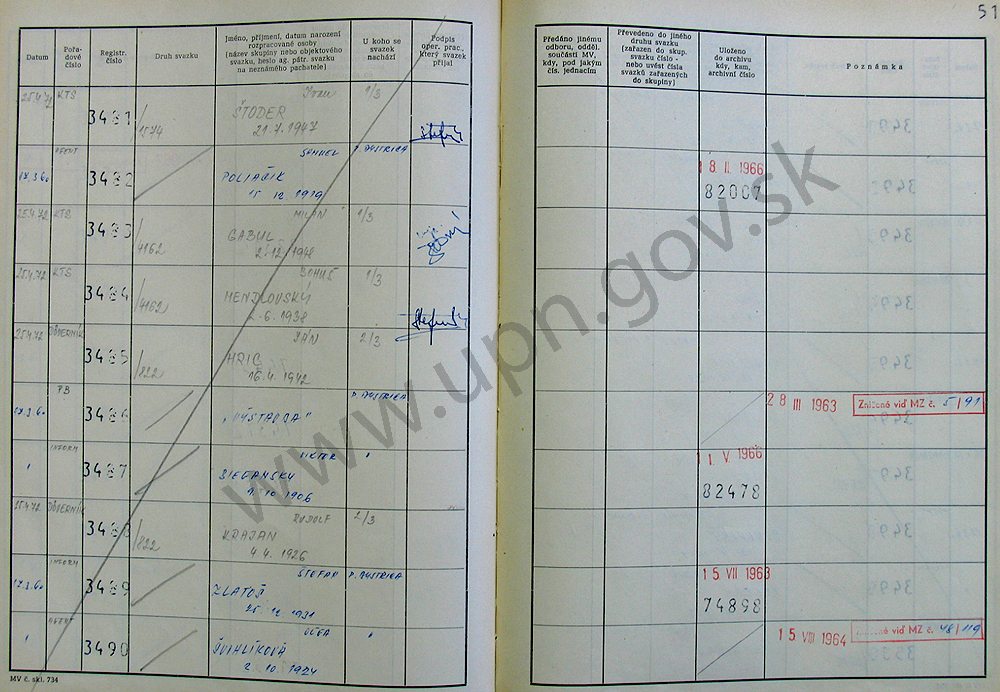 51
Datum
Pořa-
dové
číslo
Registr.
číslo
Druh svazku
Jméno, příjmení, datum narození
rozpracované osoby
(název skupiny nebo objektového
svazku, heslo ag. pátr. svazku
na neznámého pachatele)
U koho se
svazek
nachází
Podpis
oper. prac.
který svazek
přijal
Předáno jinému
odboru, odděl.
součásti MV,
kdy, pod jakým
čís. jednacím
Převedeno do jiného
druhu svazku
(zařazen do skup.
svazku číslo -
nebo uvést čísla
svazků zařazených
do skupiny)
Uloženo
do archivu
kdy, kam,
archivní číslo
Poznámka
25.4.72 KTS 3481 /1574 Ivan 1/3
ŠTODER
21.7.1947
AGENT 3482 SAMUEL P. BYSTRICA 18. II. 1966
17.3.60 POLIAČIK 82007
15 12 1919
25.4.72 KTS 3483 /4162 MILAN 1/3
GABUL
2.12.1948
25.4.72 KTS 3484 /4162 BOHUŠ 1/3
MENDLOVSKÝ
2.6.1938
25.4.72 DÔVERNÍK 3485 /822 JÁN 2/3
HRIC
16.4.1942
PB 3486 P. BYSTRICA 28 III 1963 Znížené viď MZ č. 5/91
17.3.60 „VÝSTAVBA"
INFORM 3487 VIKTOR " 1 1. V. 1966
" 82478
9. 10 1906
25.4.72 DÔVERNÍK 3488 /822 RUDOLF 2/3
KRAJAN
4.4.1926
INFORM 3489 ŠTEFAN P. BYSTRICA 15 VII 1963
17.3.60 ZLATOŠ 74898
25 12 1931
AGENT 3490 OĽGA " 15 VIII 1964 Znížené viď MZ č. 48/119
" ŠVIHLÍKOVÁ
2. 10. 1924
MV č. skl. 734
www.upn.gov.sk